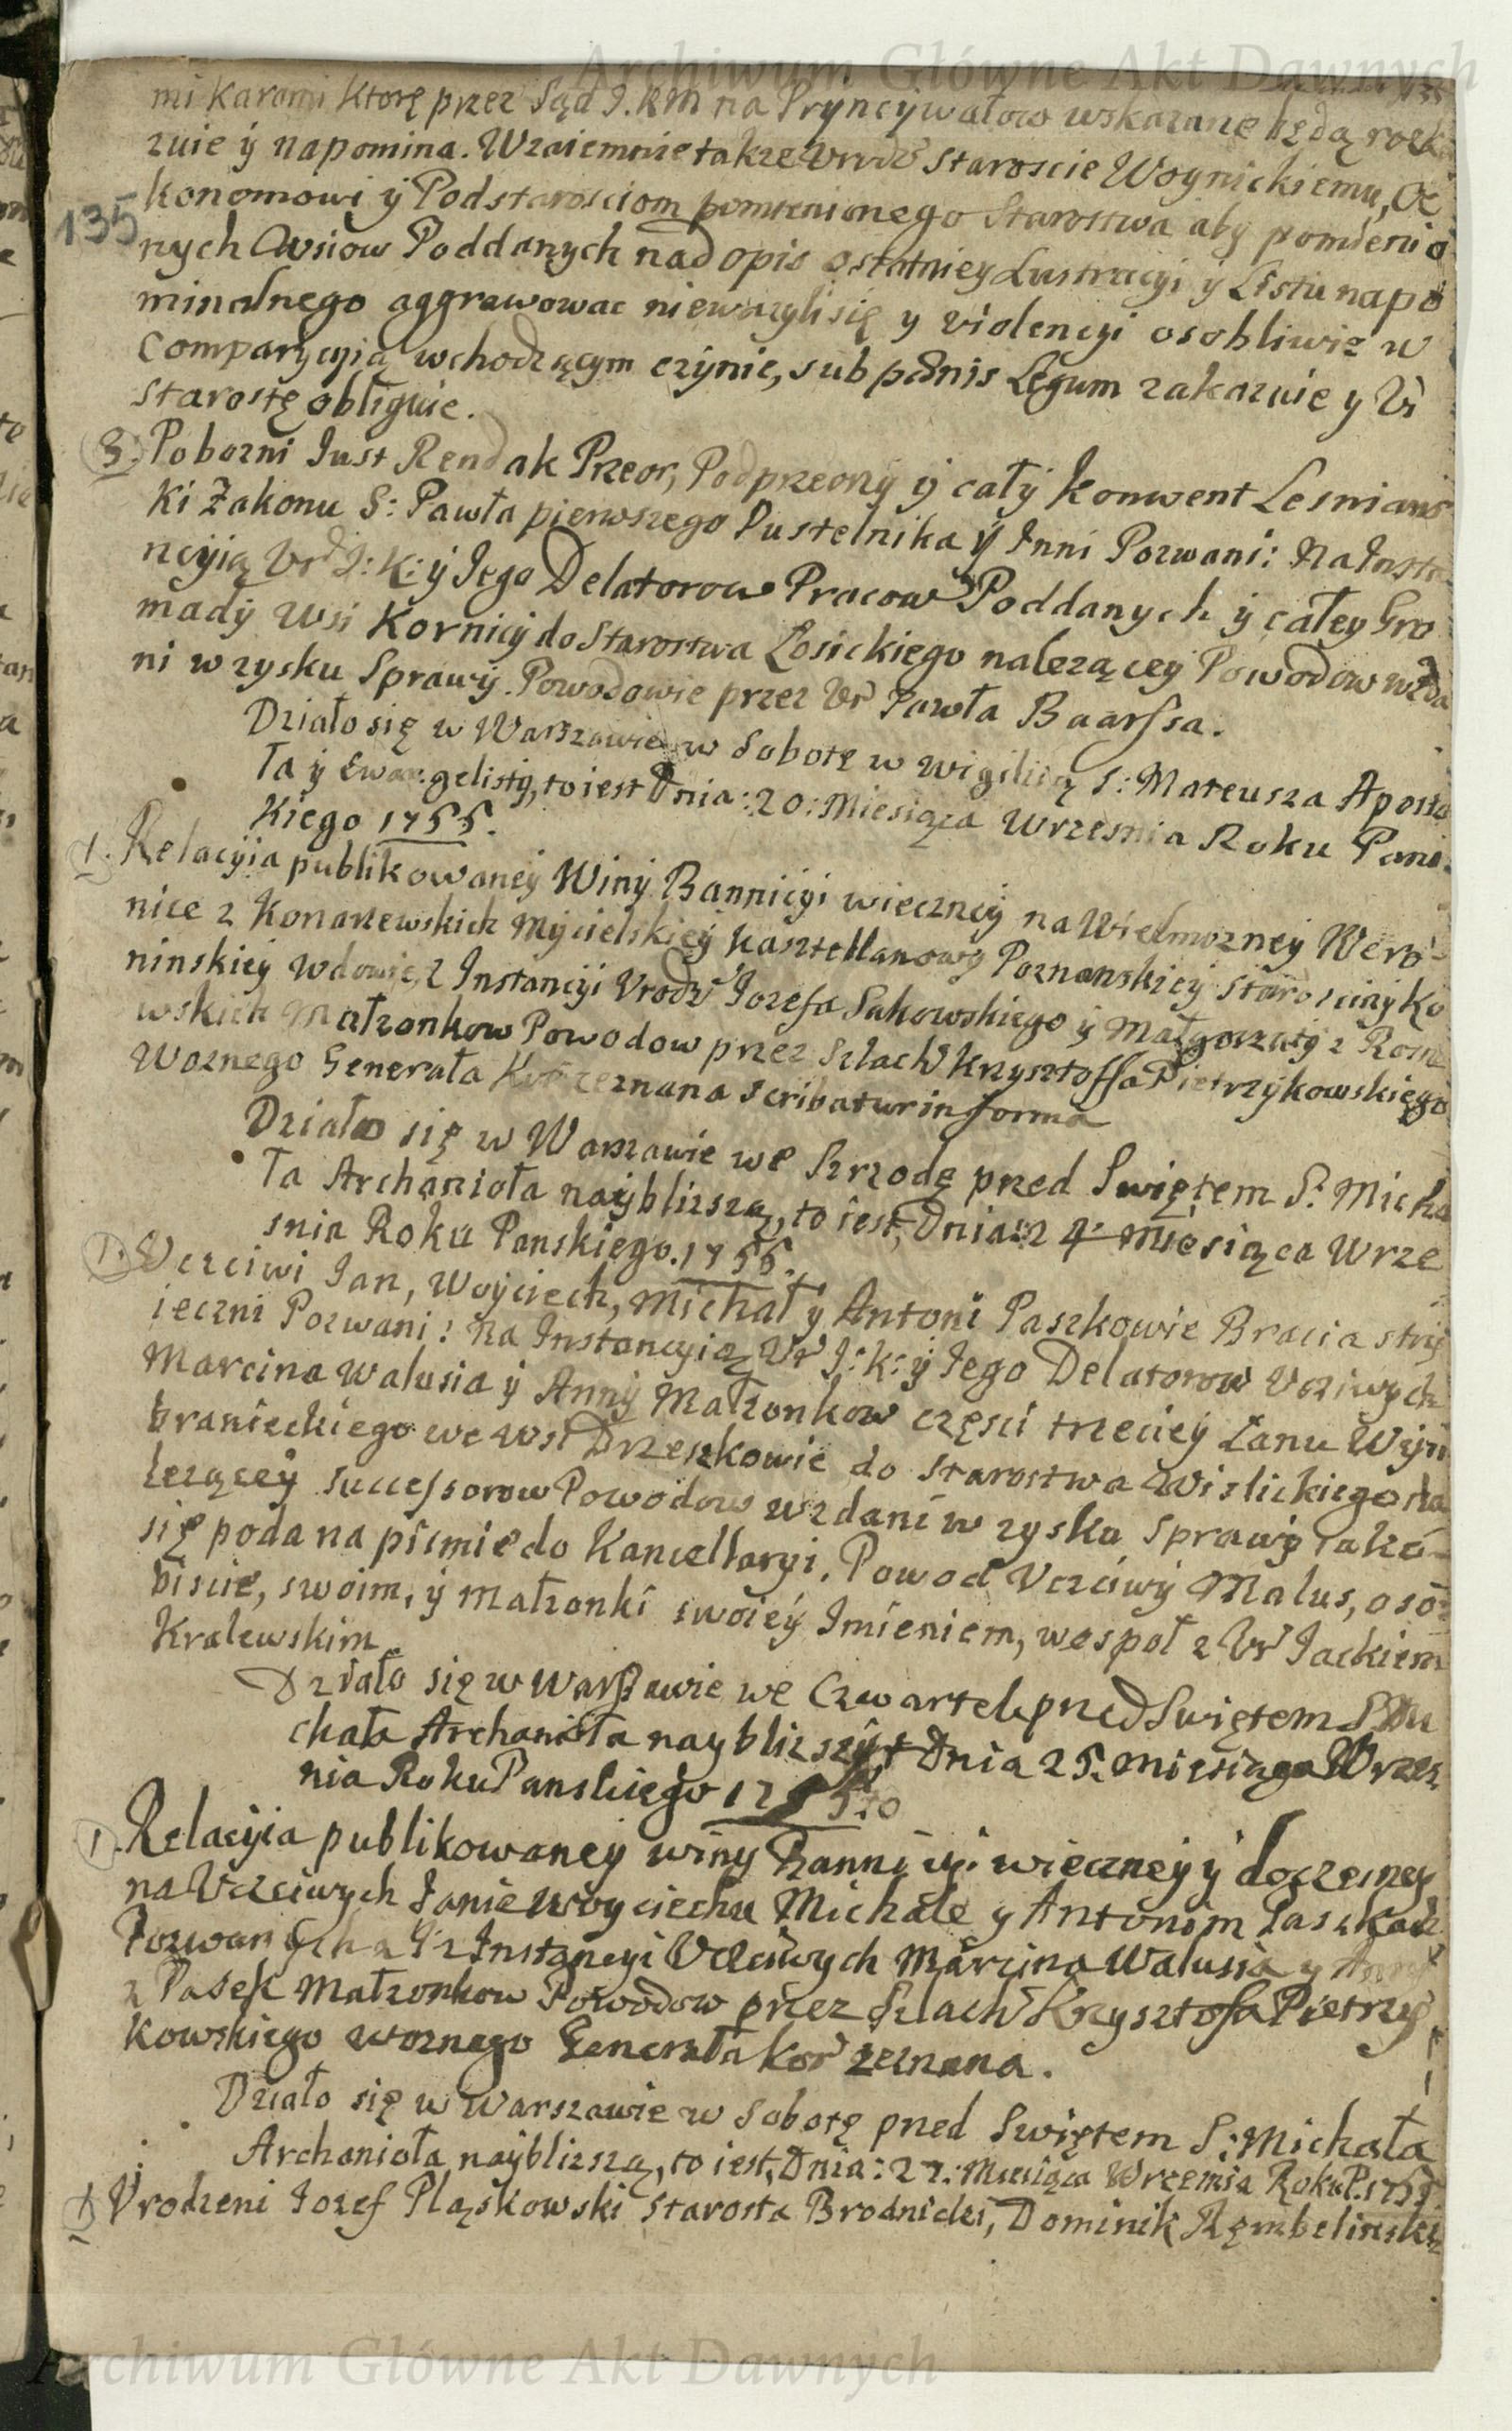 Archiwum Główne Akt Dawnych
mi karami ktorę przez Sąd J. KM na Pryncypałow wskazane będą roska
zuie ÿ napomina. Wzaiemnie także Urodz Staroscie Woynickiemu, Oe
konomowi ÿ Podstarosciom pomienionego Starostwa aby pomienio
135
nych Wsiow Poddanych nad opis ostatniey Lustracyi ÿ Listu napo
minalnego aggrawowac nieważyli się y violencyi osobliwie w
Comparycyią wchodzącym czynie, sub paenis Legum zakazuie y Ur
Starostę obliguie.
3. Pobozni Just Rendak Przeor, Podprzeorÿ ÿ całÿ Konwent Lesnians
ki Zakonu S: Pawła pierwszego Pustelnika ÿ Inni Pozwani: Na Insta
ncyią Ur J: K: ÿ Jego Delatorow Pracow Poddanych ÿ całey Gro
madÿ Wsi Kornicÿ do Starostwa Łosickiego należącey Powodow wzda
ni w zysku Sprawÿ. Powodowie przez Ur Pawła Baarssa.
Działo się w Warszawie w Sobotę w wigilią S: Mateusza Aposto
ła ÿ Ewangelistÿ, to iest Dnia: 20: Miesiąca Wrzesnia Roku Pans
kiego 1755.
1. Relacyia publikowaneÿ Winÿ Bannicÿi wiecznéÿ na Wielmozney Wero
nice z Konarzewskich Mÿcielskiéÿ Kasztellanowy Poznanskiey Starosciny Ko
ninskiéÿ wdowie, z Instancÿi Urodz Jozefa Sakowskiego ÿ Małgorzatÿ z
wskich Małzonkow Powodow przez Szlach Krzysztoffa Pietrzÿkowskiego
Woznego Generała Kor zeznana scribatur in forma
Działo się w Warszawie we Szrzodę przed Swiętem S: Micha
ła Archanioła naÿblizszą, to iest, Dnia: 24: Miesiąca Wrze
snia Roku Panskiego. 1755.
1. Uczciwi Jan, Woÿciech, Michał ÿ Antoni Paszkowie Bracia strÿ
ieczni Pozwani: Na Instancyią Ur J: K: ÿ Jego Delatorow Uczciwych
Marcina Walusia ÿ Annÿ Małzonkow części trzeciéÿ Łanu Wÿri
branieckiego we wsi Drzeszkowie do Starostwa Wislickiego na
leząceÿ Successorow Powodow wzdani w zysku Sprawÿ iako
się poda na pismie do Kancellaryi. Powod Uczciwÿ Malus, oso
biscie, swoim, ÿ Małzonki swoiéÿ Imieniem, wespoł z Ur Jackiem
Kralewskim.
Działo się w Warszawie we Czwartek przed Swiętem S: Mi
chała Archanioła nayblizszÿ Dnia 25. Miesiąca Wrzes
nia Roku Panskiego 1755.to
1. Relacyia publikowaney winy Bannicyi wieczney ÿ doczesney
na Uczciwych Janie Woyciechu Michale y Antonim Paszkach
Pozwanÿch z Instancyi Uczciwych Marcina Walusia y Anny
z Pasek Małzonkow Powodow przez Szlach Krzysztofa Pietrzy
kowskiego woznego Generała Kor zeznana.
Działo się w Warszawie w Sobotę przed Swiętem S: Michała
Archanioła naÿblizszą, to iest, Dnia: 27: Miesiąca Wrzesnia Roku P. 1755.
1. Urodzeni Jozef Pląskowski Starosta Brodnicki, Dominik Rębielinski
Archiwum Główne Akt Dawnych